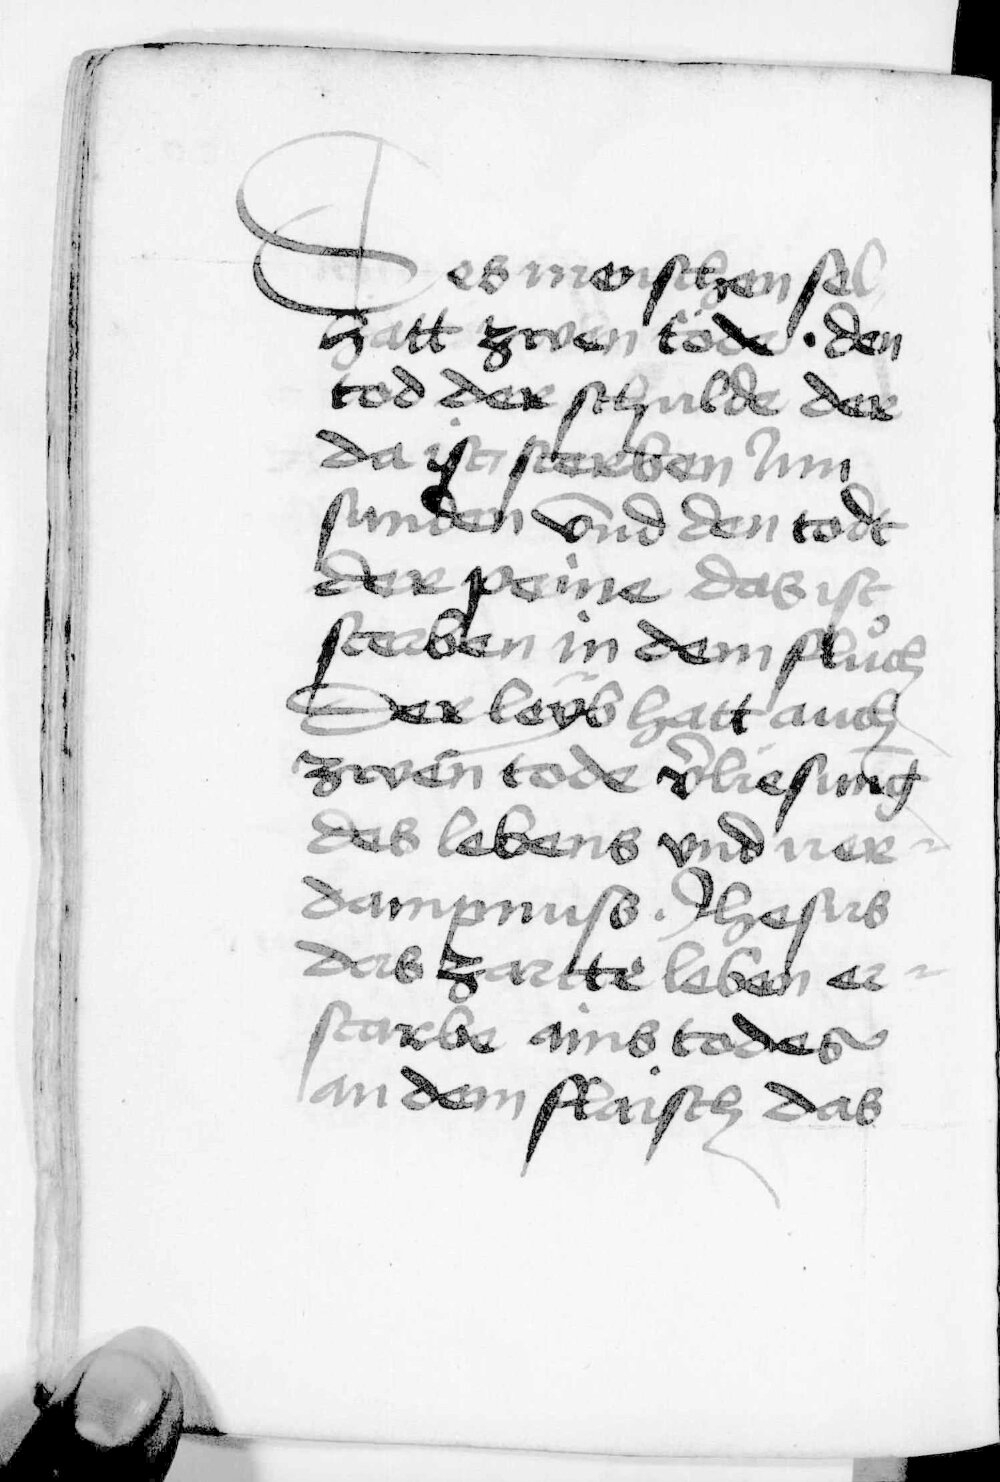 Des menschen sel
hatt zwen töde · den
tod der schulde der
da ist sterben Inn
sunden vnd den todt
der peine das ist
sterben in dem flůch
Der leÿb hatt auch
zwen tode v̄liesung
des lebens vnd ver-
dampnuß . Jhesus
das zartte leben er-
starbe ains todes
an dem flaisch das